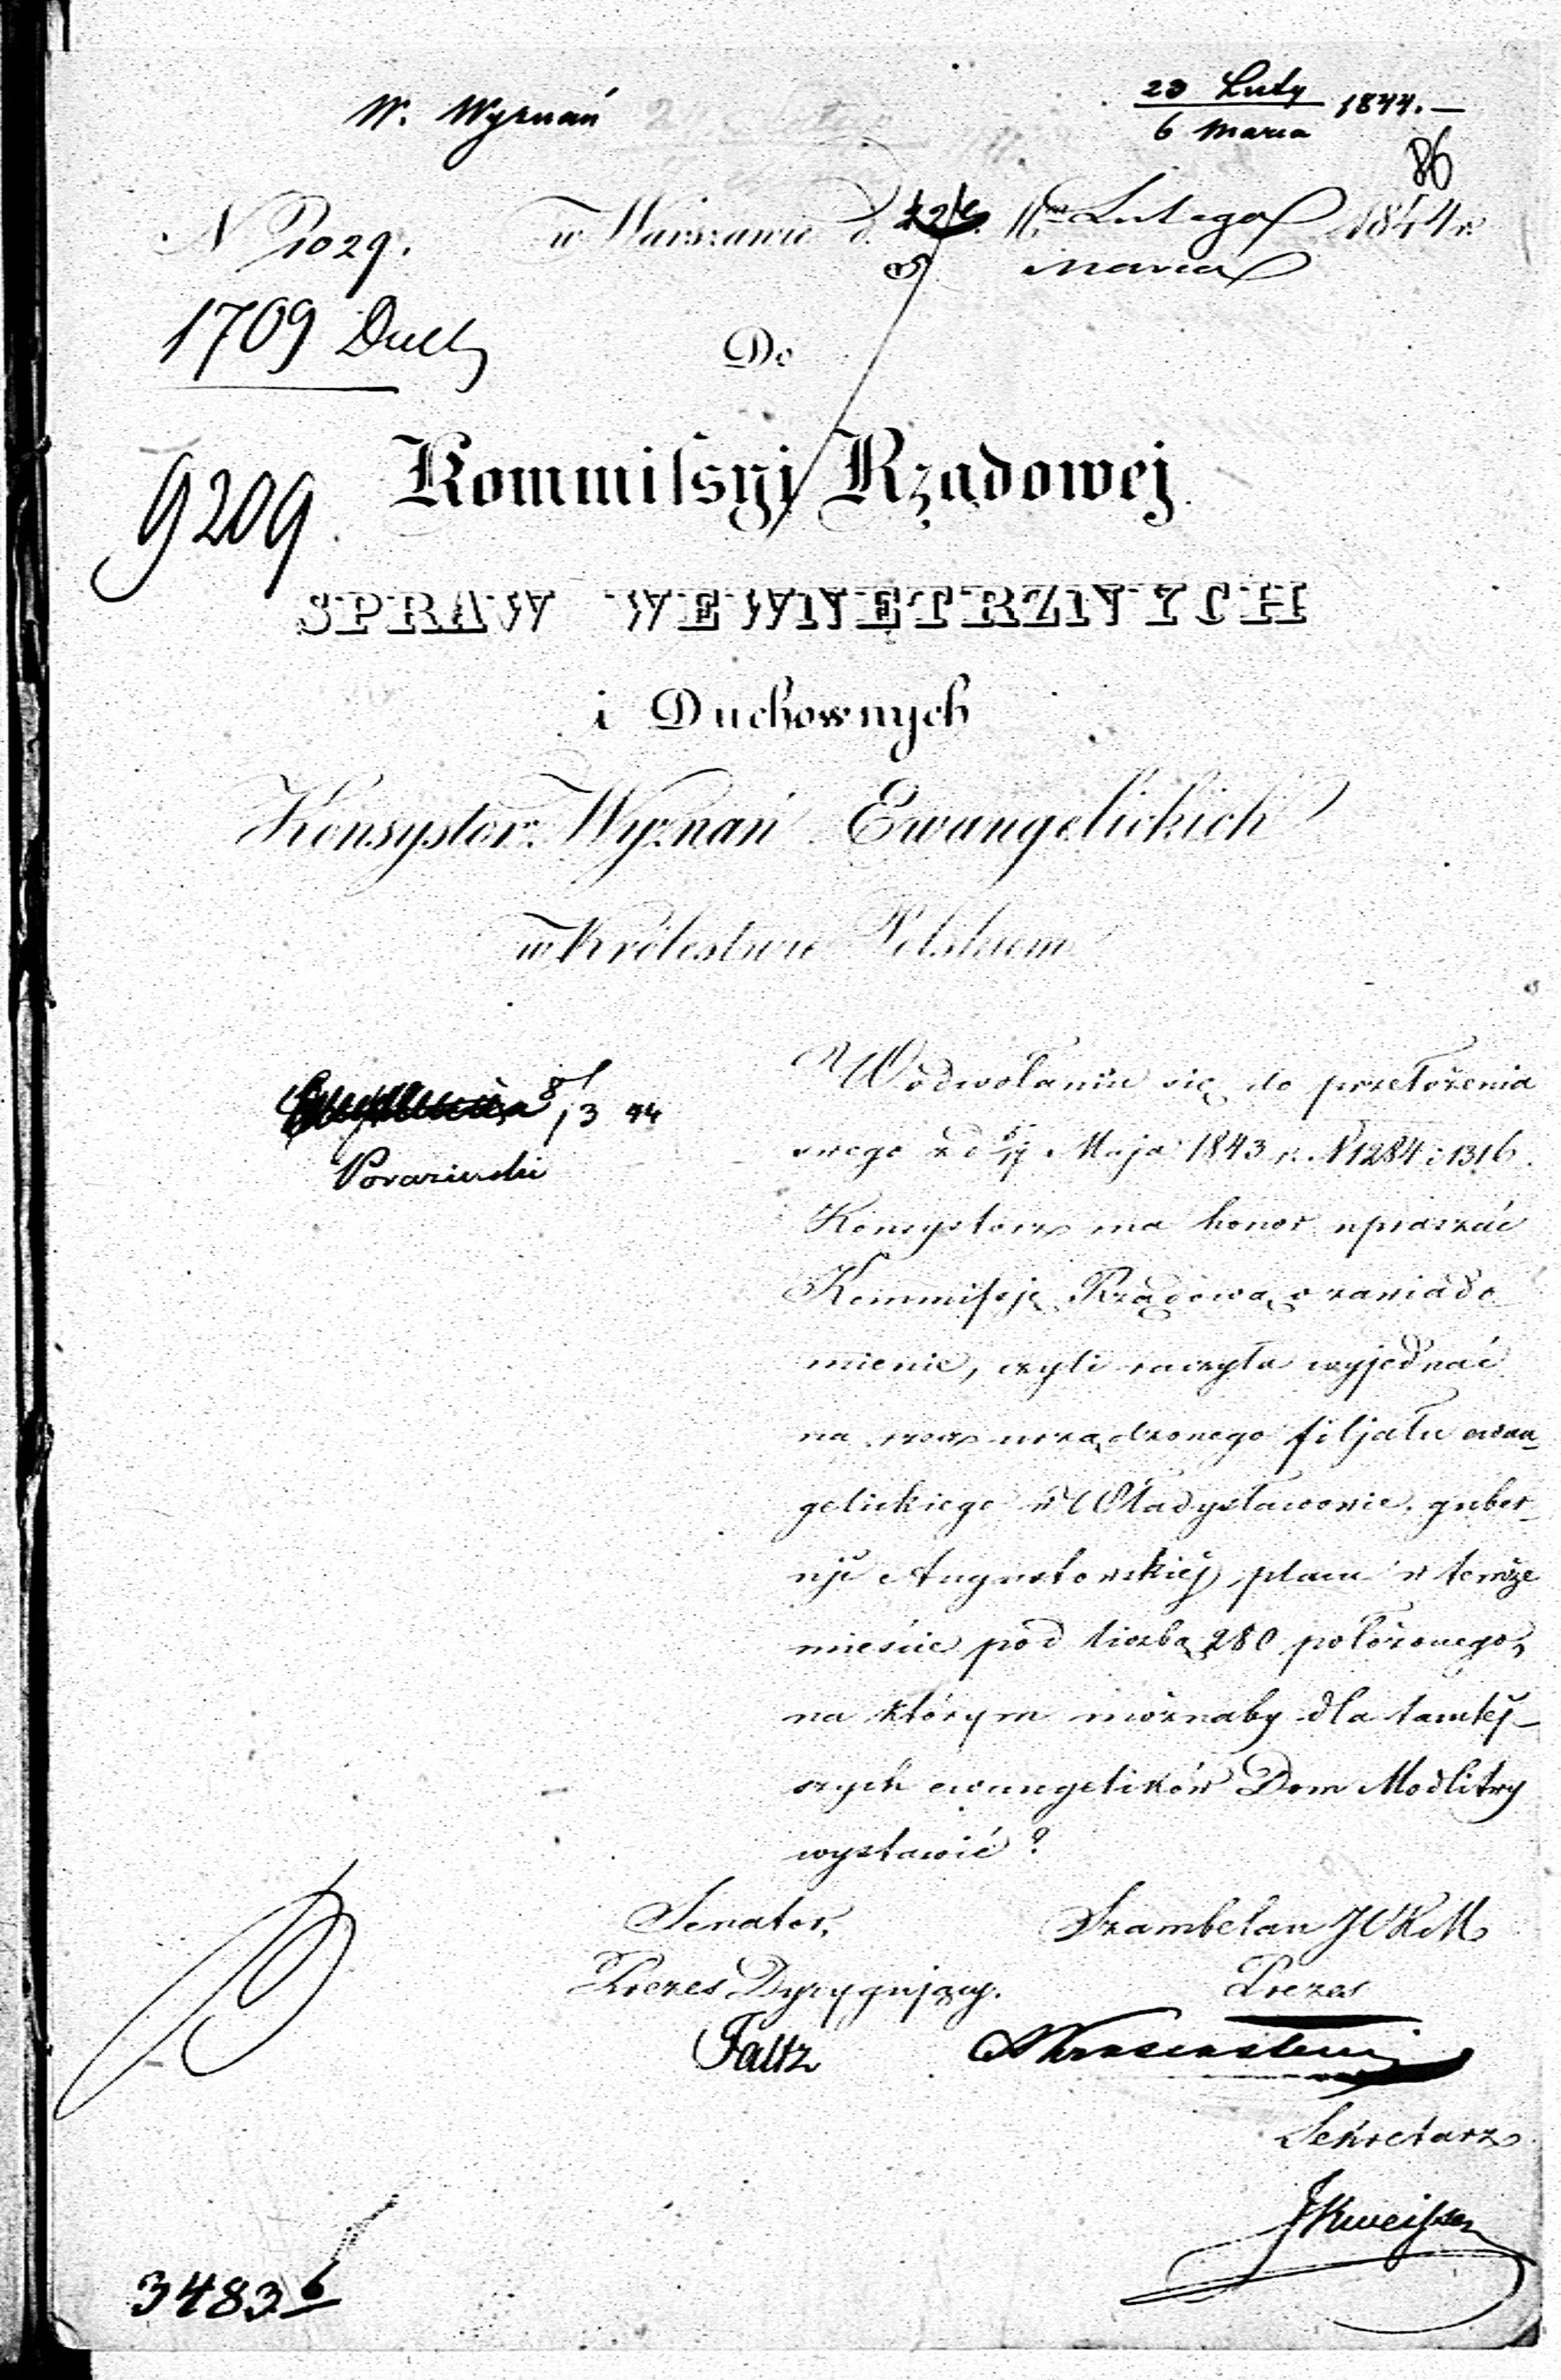 W. Wyznań
23 Luty
6 Marca 1844. —
86
N 1029. w Warszawie d. Lutego 1844 r
Marca
1709 Duch
Do
9209
Kommissyi Rządowej
SPRAW WEWNĘTRZNYCH
i Duchownych
Konsystorz Wyznań Ewangelickich
w Królestwie Polskiem
W odwołaniu się do przełożenia
swego z d 5/17 Maja 1843 r. N 1284 i 1316.
8/3 44
Konsystorz ma honor upraszać
Kommissję Rządową o zawiado
mienie, czyli raczyła wyjednać
na rzecz urządzonego filjału ewan_
gelickiego w Władysławowie, guber_
nji Augustowskiej, placu w temże
mieście pod liczbą 280 położonego,
na którym możnaby dla tamtej_
szych ewangelików Dom Modlitwy
wystawić?
Senator, Szambelan JCKM
Prezes Dyrygujący. Prezes
Faltz
Sekretarz
34836